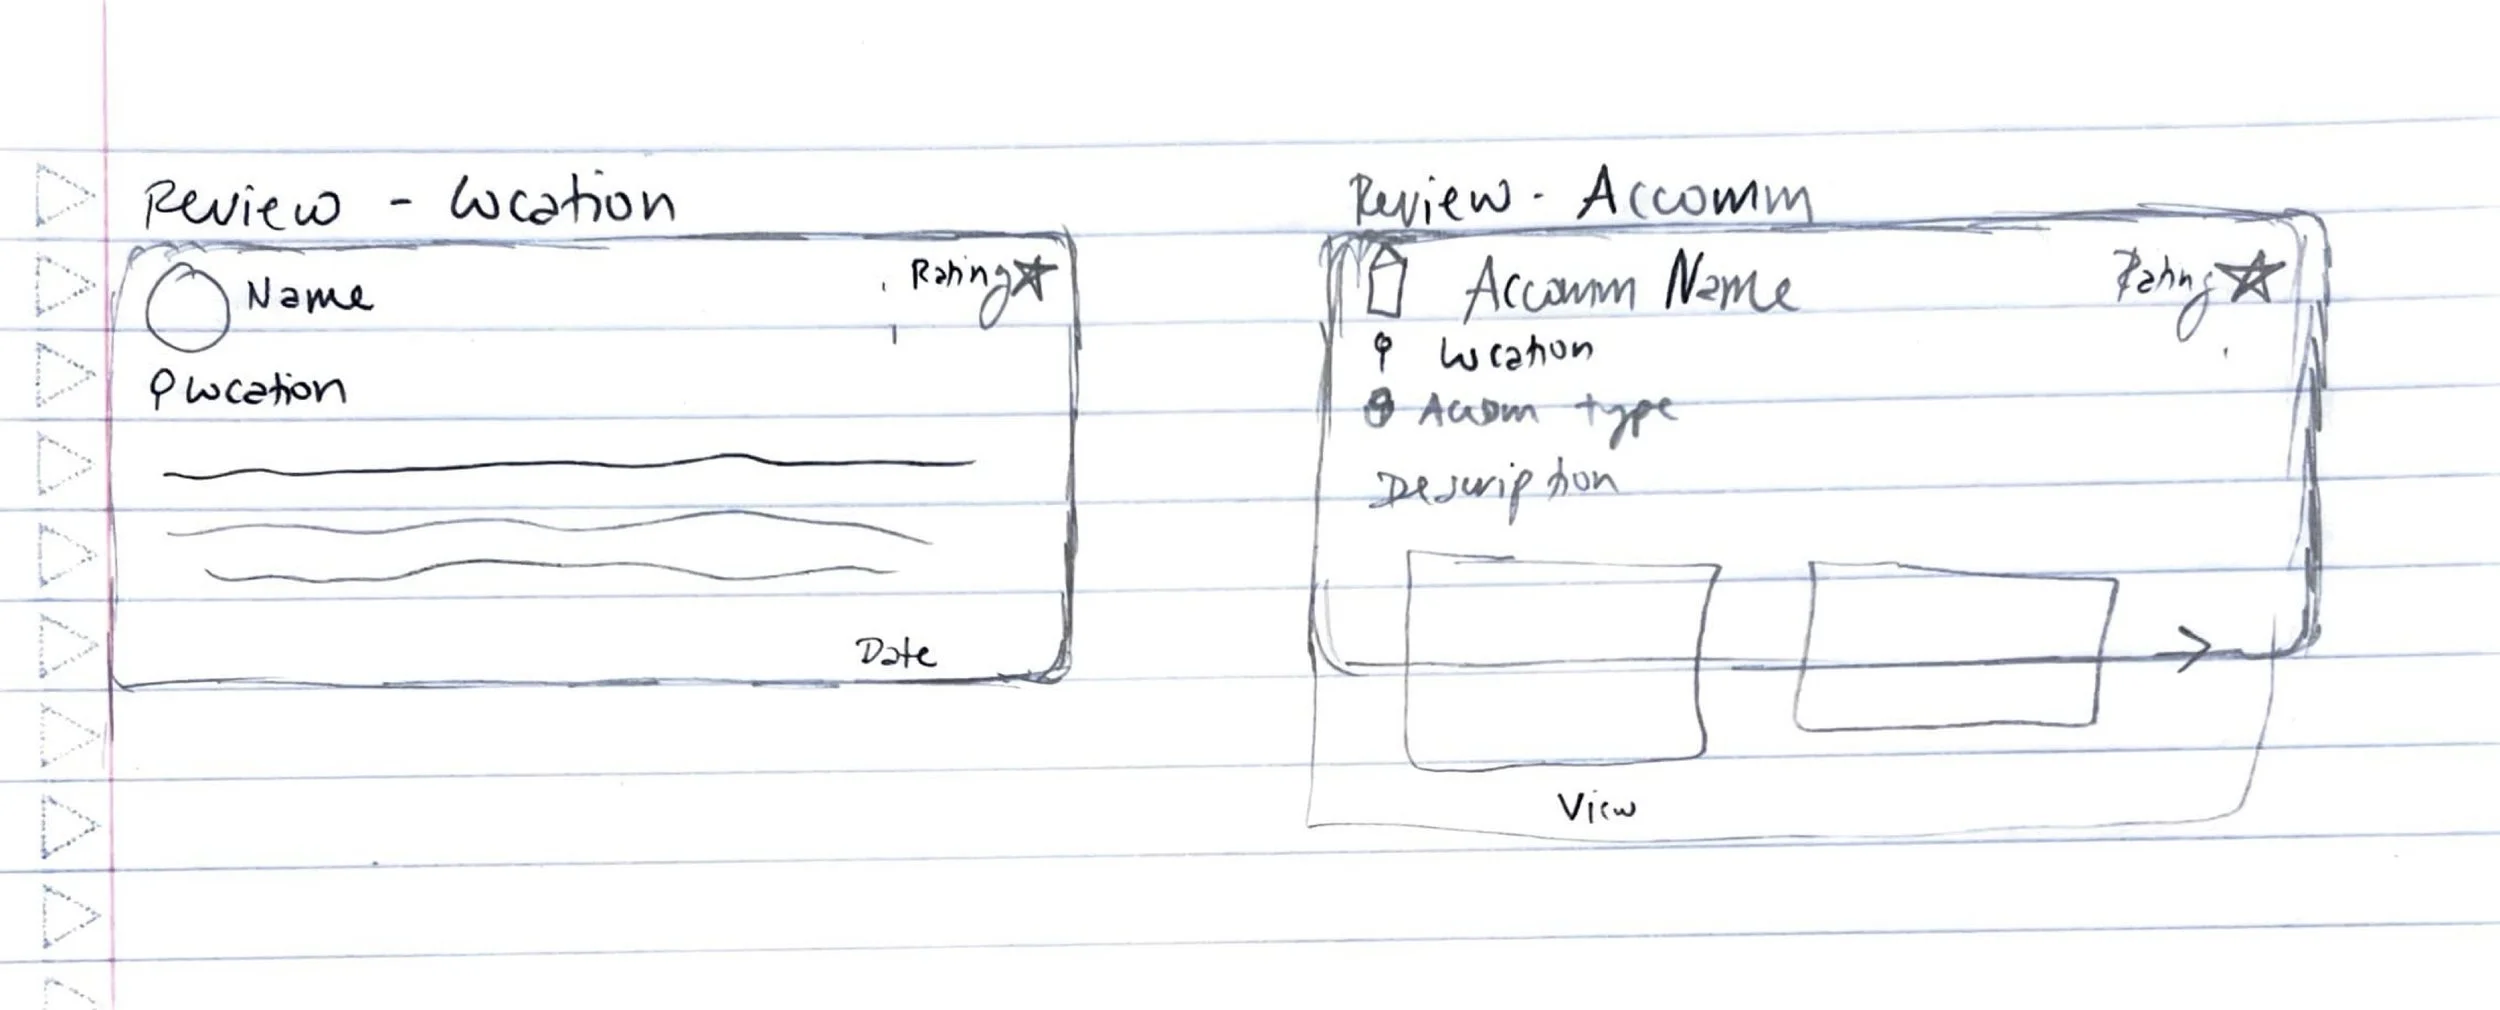 Review - Location
Name
Rating
Location
Date
Review - Accomm
Accomm Name
Rating
Location
Accom type
Description
View